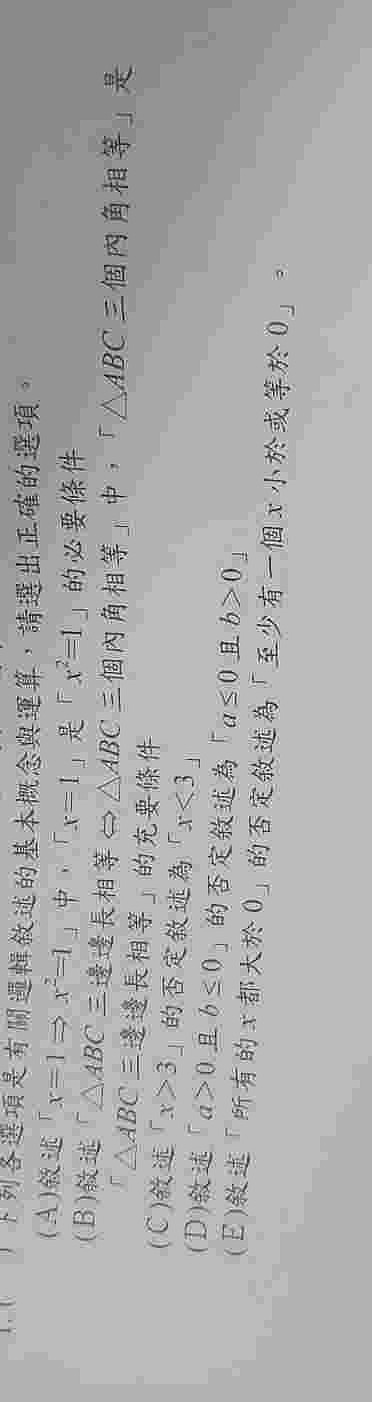 下列各選項是有關邏輯敘述的基本概念與運算，請選出正確的選項。
(A)敘述「x=1⇒x²=1」中，「x=1」是「x²=1」的必要條件
(B)敘述「△ABC三邊邊長相等⇔△ABC三個內角相等」中，「△ABC三個內角相等」是
「△ABC三邊邊長相等」的充要條件
(C)敘述「x>3」的否定敘述為「x<3」
(D)敘述「a>0且b≤0」的否定敘述為「a≤0且b>0」
(E)敘述「所有的x都大於0」的否定敘述為「至少有一個x小於或等於0」。